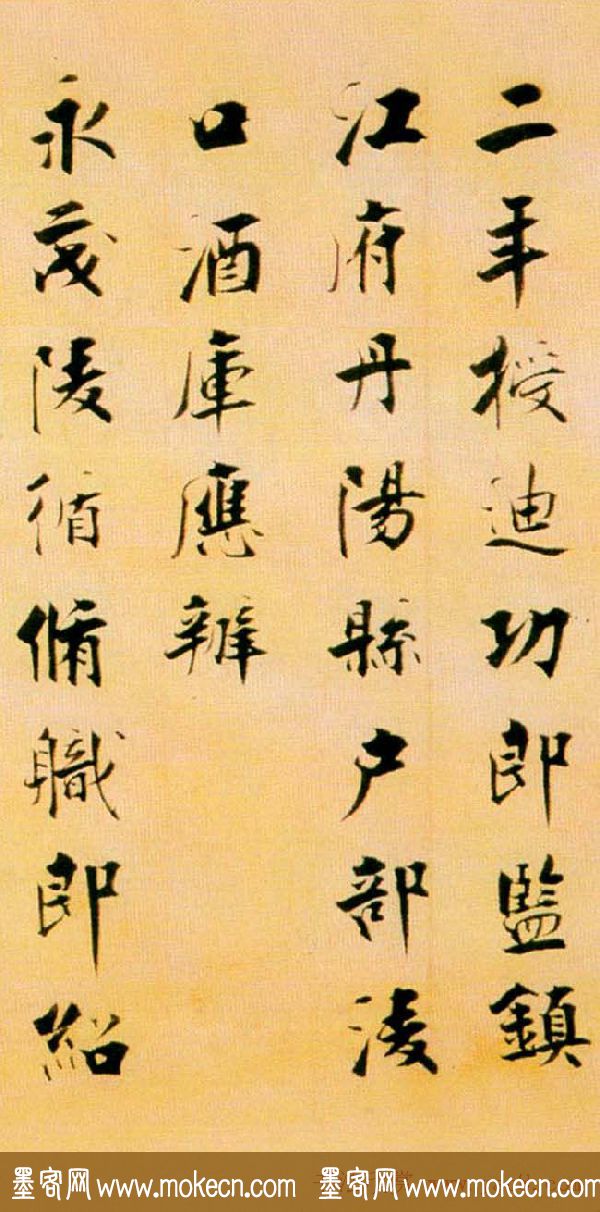 二年授迪功郎監鎮
江府丹陽縣户部淩
口酒庫應辦
永茂陵循脩職郎紹
墨客网 www.mokecn.com 墨客网 www.mokecn.com